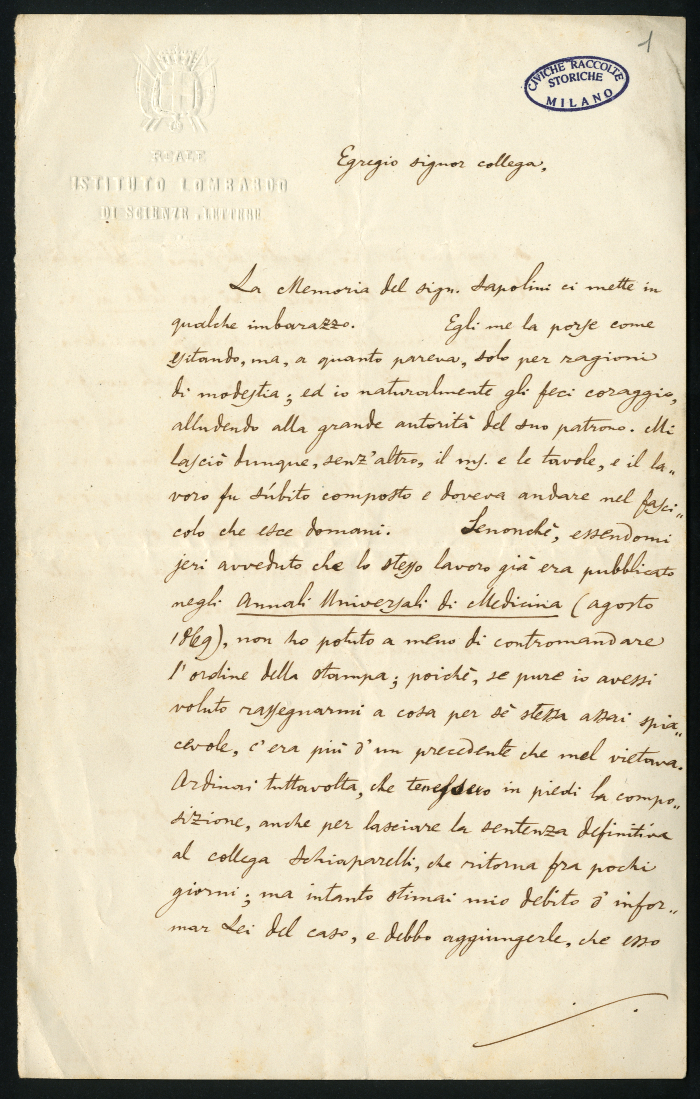 1
CIVICHE RACCOLTE
STORICHE
MILANO
REALE
ISTITUTO LOMBARDO
DI SCIENZE E LETTERE
Egregio signor collega,
La Memoria del sign. Sapolini ci mette in
qualche imbarazzo. Egli me la porse come
esitando, ma, a quanto pareva, solo per ragioni
di modestia; ed io naturalmente gli feci coraggio,
alludendo alla grande autorità del suo patrono. Mi
lasciò dunque, senz'altro, il ms. e le tavole, e il la„
voro fu súbito composto e doveva andare nel fasci„
colo che esce domani. Senonchè, essendomi
jeri avveduto che lo stesso lavoro già era pubblicato
negli Annali Universali di Medicina (agosto
1869), non ho potuto a meno di contromandare
l'ordine della stampa; poichè, se pure io avessi
voluto rassegnarmi a cosa per sè stessa assai spia„
cevole, c'era più d'un precedente che mel vietava.
Ordinai tuttavolta, che tenessero in piedi la compo„
sizione, anche per lasciare la sentenza definitiva
al collega Schiaparelli, che ritorna fra pochi
giorni; ma intanto stimai mio debito d'infor„
mar Lei del caso, e debbo aggiungerle, che esso